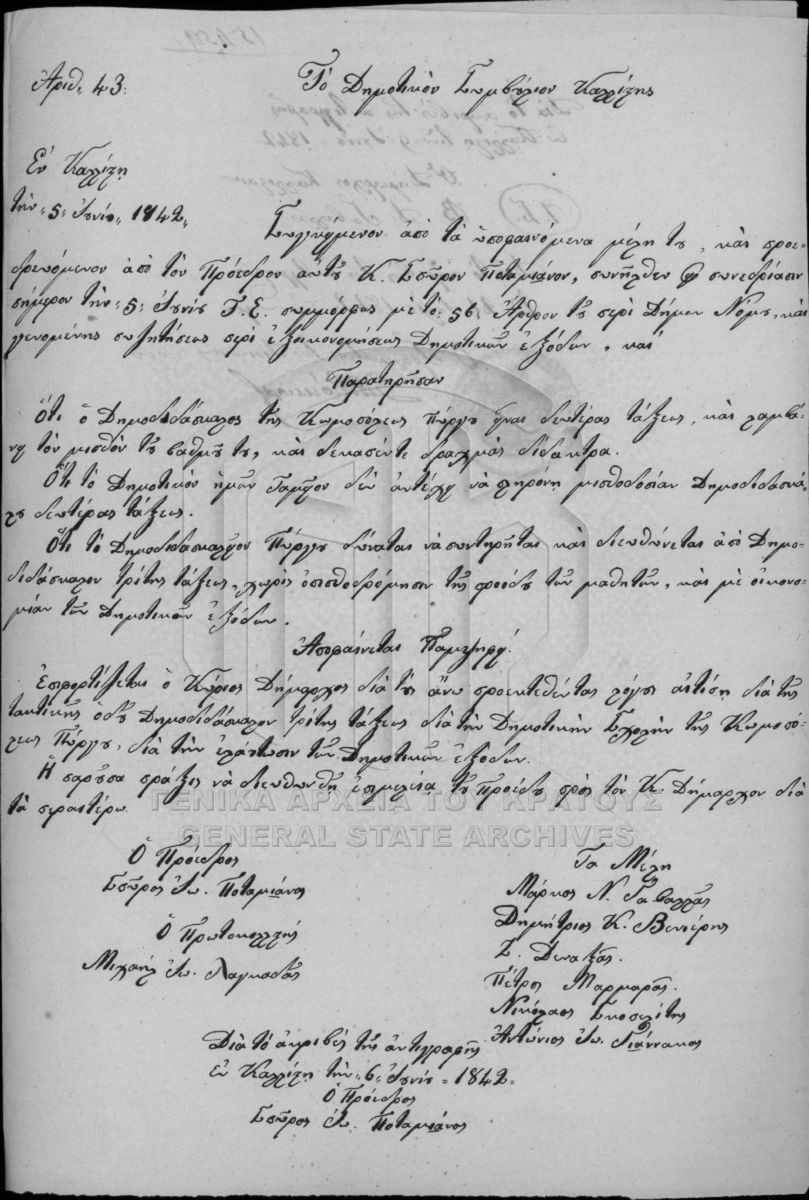 Ἀριθ. 43.
Τὸ Δημοτικὸν Συμβούλιον Καλλίστης
Ἐν Καλλίστῃ
τὴν 5 Ἰουνίου 1842
Συγκείμενον ἀπὸ τὰ ὑποφαινόμενα μέλη του, καὶ προε-
δρευόμενον ἀπὸ τὸν Πρόεδρον αὐτοῦ Κ. Σπῦρον Ποταμιάνον, συνῆλθεν συνεδρίασιν
σήμερον τὴν 5 Ἰουνίου Τ. Ε. συμμόρφως μὲ τὸ 56 Ἄρθρον τοῦ περὶ Δήμων Νόμου, καὶ
γενομένης συζητήσεως περὶ ἐξοικονομήσεως Δημοτικῶν ἐξόδων, καὶ
Παρατηρῆσαν
Ὅτι ὁ Δημοδιδάσκαλος τῆς Κωμοπόλεως Πύργου εἶναι δευτέρας τάξεως, καὶ λαμβά-
νει τὸν μισθὸν τοῦ βαθμοῦ του, καὶ δεκαπέντε δραχμὰς δίδακτρα.
Ὅτι τὸ Δημοτικὸν ἡμῶν Ταμεῖον δὲν ἀντέχει νὰ πληρόνῃ μισθοδοσίαν Δημοδιδασκά-
λου δευτέρας τάξεως.
Ὅτι τὸ Δημοδιδασκαλεῖον Πύργου δύναται νὰ συντηρῆται καὶ διευθύνεται ἀπὸ Δημο-
διδάσκαλον τρίτης τάξεως, χωρὶς ὀπισθοδρόμησιν τῆς προόδου τῶν μαθητῶν, καὶ μὲ οἰκονο-
μίαν τῶν Δημοτικῶν ἐξόδων.
Ἀποφαίνεται Παμψηφεί
Ἐπιφορτίζεται ὁ Κύριος Δήμαρχος διὰ τοὺς ἄνω προεκτεθέντας λόγους αἰτήσῃ διὰ τῆς
τακτικῆς ὁδοῦ Δημοδιδάσκαλον τρίτης τάξεως διὰ τὴν Δημοτικὴν Σχολὴν τῆς Κωμοπό-
λεως Πύργου, διὰ τὴν ἐλάττωσιν τῶν Δημοτικῶν ἐξόδων.
Ἡ παροῦσα πράξις νὰ διευθυνθῇ ἐπιμελείᾳ τοῦ Προέδρου πρὸς τὸν Κ. Δήμαρχον διὰ
τὰ περαιτέρω.
ΓΕΝΙΚΑ ΑΡΧΕΙΑ ΤΟΥ ΚΡΑΤΟΥΣ
GENERAL STATE ARCHIVES
Ὁ Πρόεδρος
Σπῦρος Ἰω. Ποταμιάνος
Ὁ Πρωτοκολλητής
Μιχαήλ Ἰω. Λαγκαδᾶς
Τα Μέλη
Μάρκος Ν. Γαβαλλᾶς
Δημήτριος Κ. Βενιέρης
Ζ. Δεναξᾶς.
Πέτρος Μαρμαρᾶς.
Νικόλαος Σκοπελίτης
Ἀντώνιος Ἰω. Γιάννακος
Διὰ τὸ ἀκριβὲς τῆς ἀντιγραφῆς
ἐν Καλλίστῃ τὴν 6 Ἰουνίου 1842
Ὁ Πρόεδρος
Σπῦρος Ἰω. Ποταμιάνος